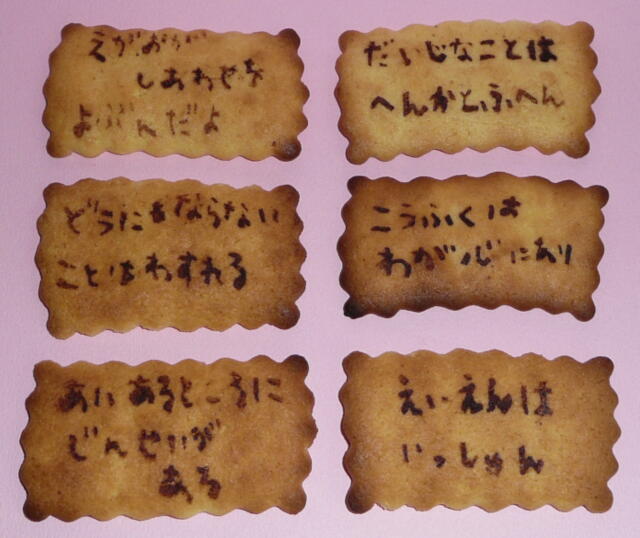 えがおが
しあわせを
よぶんだよ
だいじなことは
へんかとふへん
どうにもならない
ことはわすれる
こうふくは
わが心にあり
あいあるところに
じんせいが
ある
えいえんは
いっしゅん